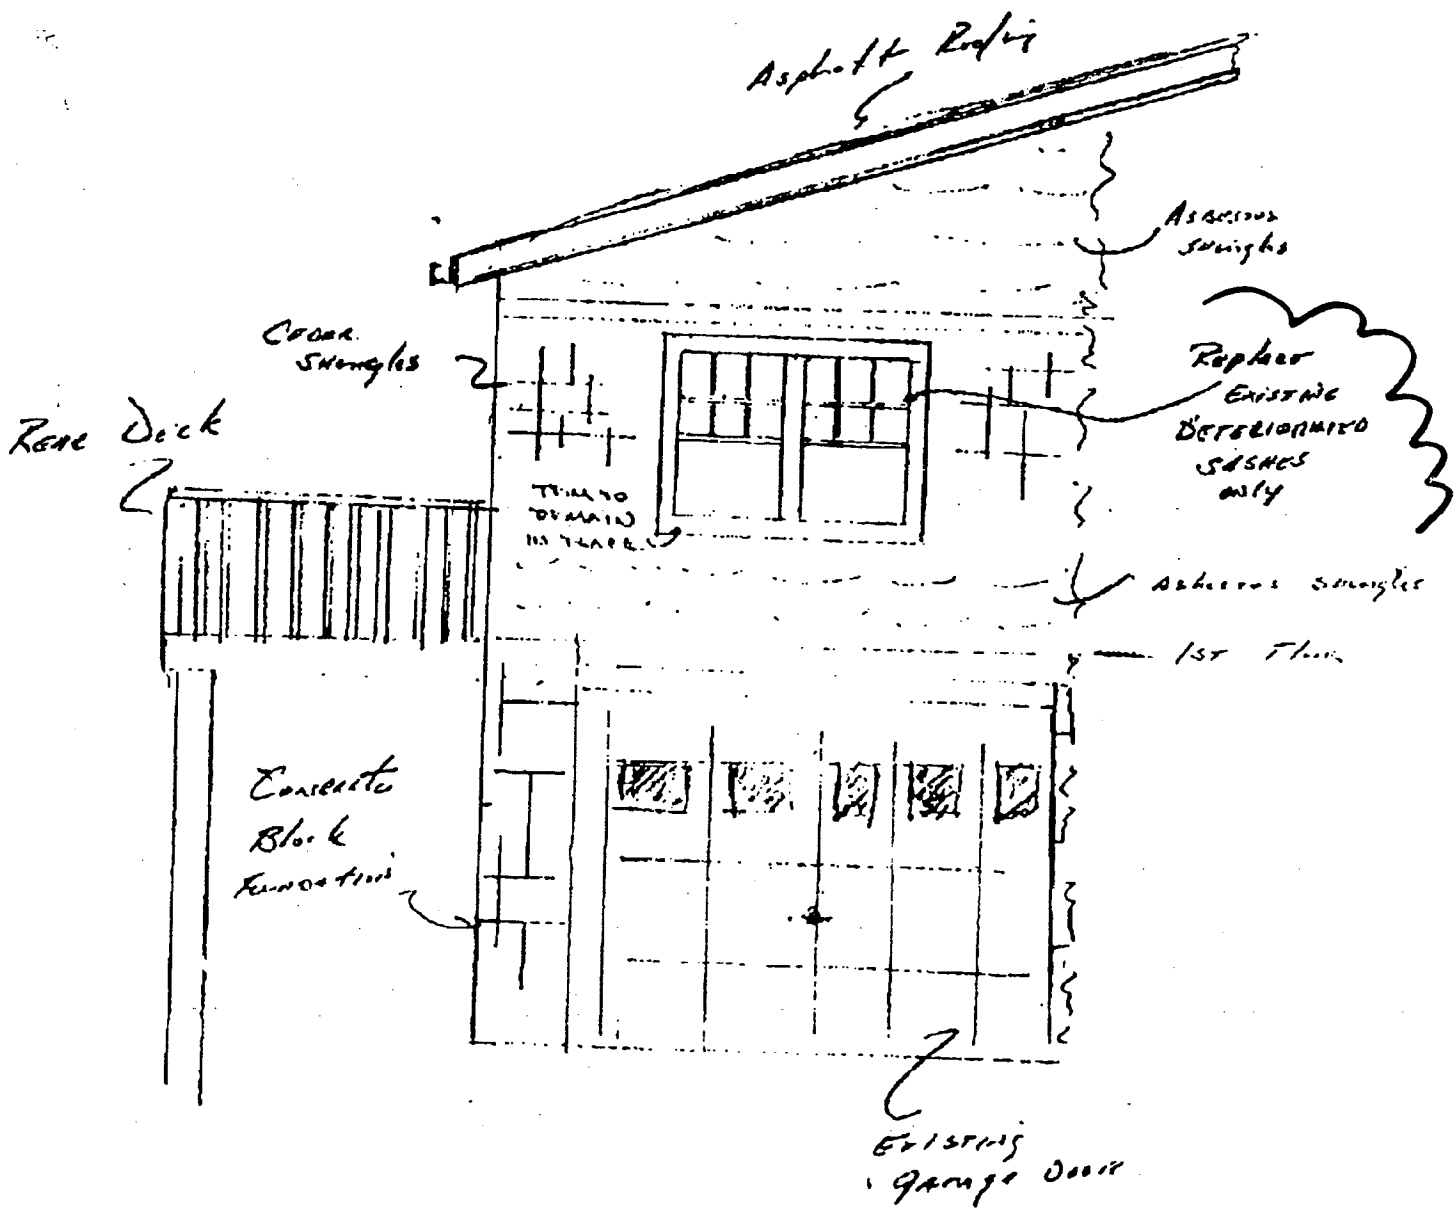 Asphalt Roofing
Asbestos
Shingles
Cedar
Shingles
Replace
Existing
Deteriorated
Sashes
only
Rear Deck
Trim to
Remain
in Place
Asbestos Shingles
1st Floor
Concrete
Block
Foundation
Existing
Garage Door